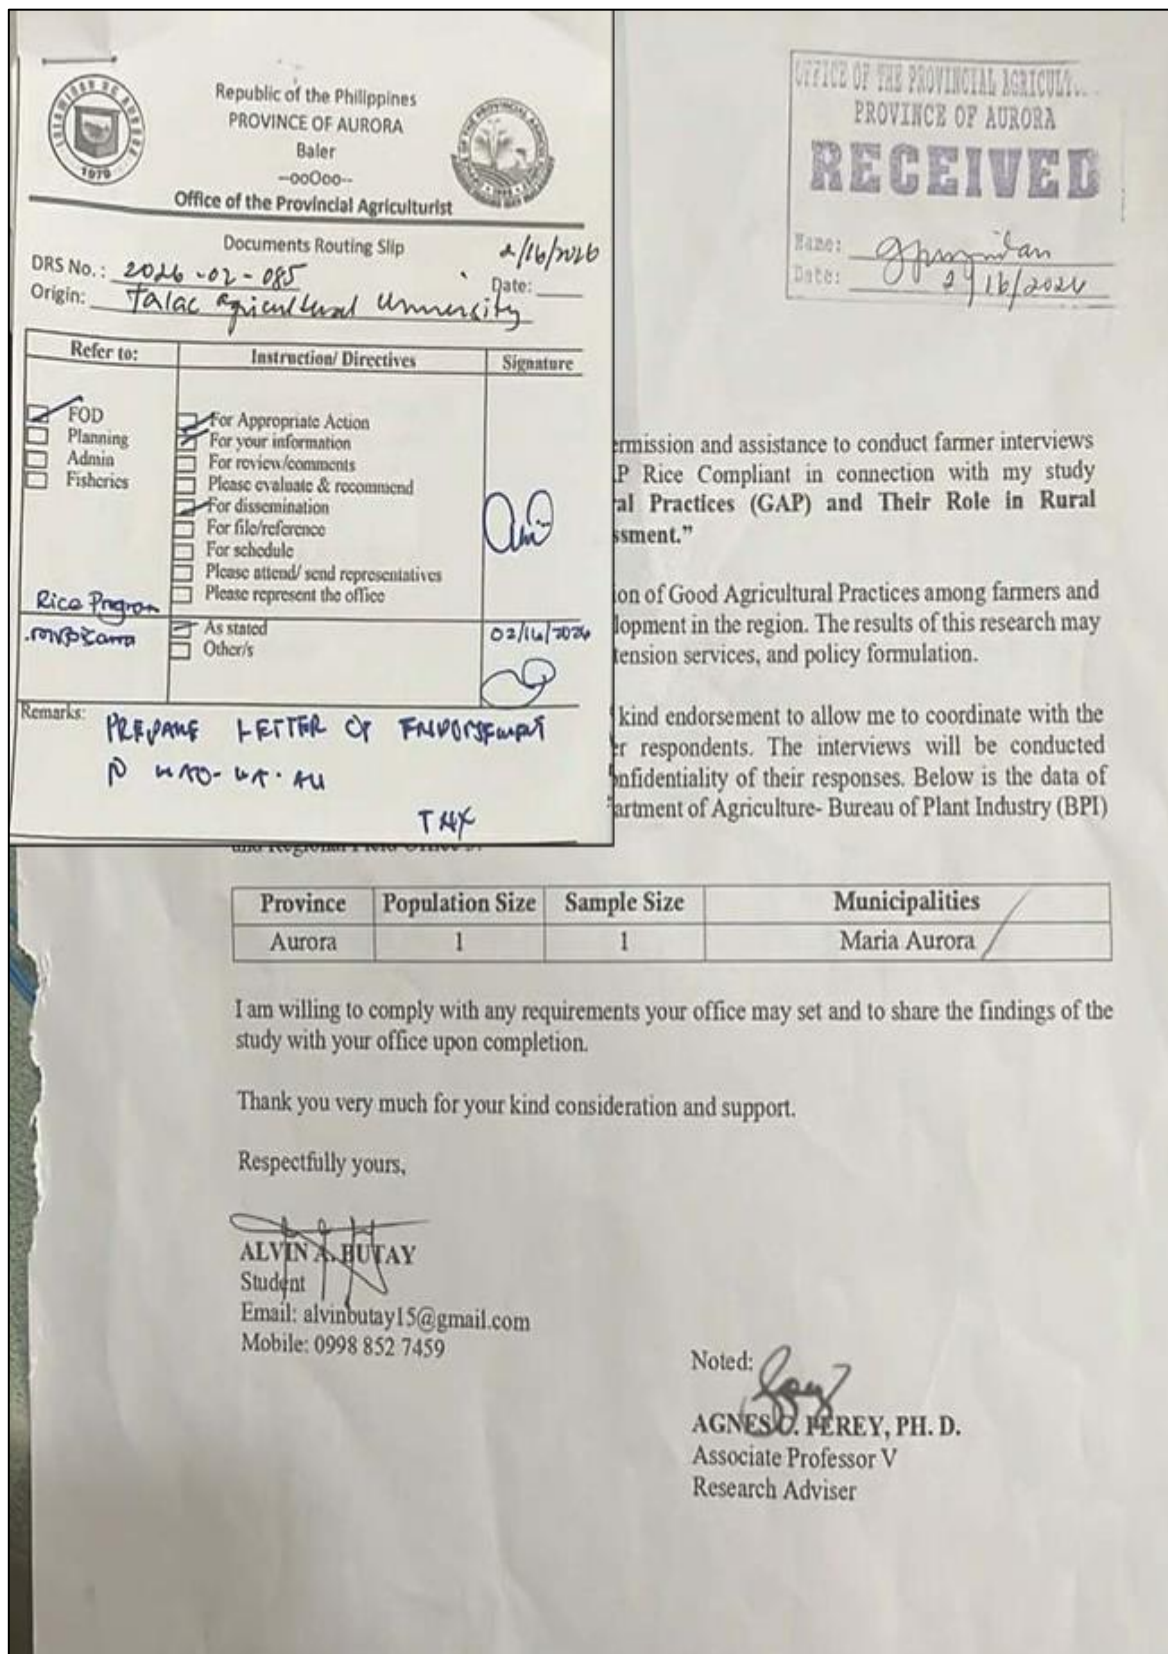 Republic of the Philippines
PROVINCE OF AURORA
Baler
--ooOoo--
Office of the Provincial Agriculturist
1979
Documents Routing Slip
2/16/2026
DRS No.: 2026-02-085
Date:
Origin: Talac Agricultural University
Refer to: Instruction/ Directives Signature
FOD
Planning
Admin
Fisheries
For Appropriate Action
For your information
For review/comments
Please evaluate & recommend
For dissemination
For file/reference
For schedule
Please attend/ send representatives
Please represent the office
Rice Program
As stated
Other/s
02/16/2026
Remarks: PREPARE LETTER OF ENDORSEMENT
THX
OFFICE OF THE PROVINCIAL AGRICULT
PROVINCE OF AURORA
RECEIVED
Name:
Date: 2/16/2026
ermission and assistance to conduct farmer interviews
P Rice Compliant in connection with my study
al Practices (GAP) and Their Role in Rural
ssment.”
ion of Good Agricultural Practices among farmers and
lopment in the region. The results of this research may
tension services, and policy formulation.
kind endorsement to allow me to coordinate with the
er respondents. The interviews will be conducted
onfidentiality of their responses. Below is the data of
artment of Agriculture- Bureau of Plant Industry (BPI)
and Regional Field Office 3.
Province Population Size Sample Size Municipalities
Aurora 1 1 Maria Aurora
I am willing to comply with any requirements your office may set and to share the findings of the
study with your office upon completion.
Thank you very much for your kind consideration and support.
Respectfully yours,
ALVIN A. BUTAY
Student
Email: alvinbutay15@gmail.com
Mobile: 0998 852 7459
Noted:
AGNES C. PEREY, PH. D.
Associate Professor V
Research Adviser